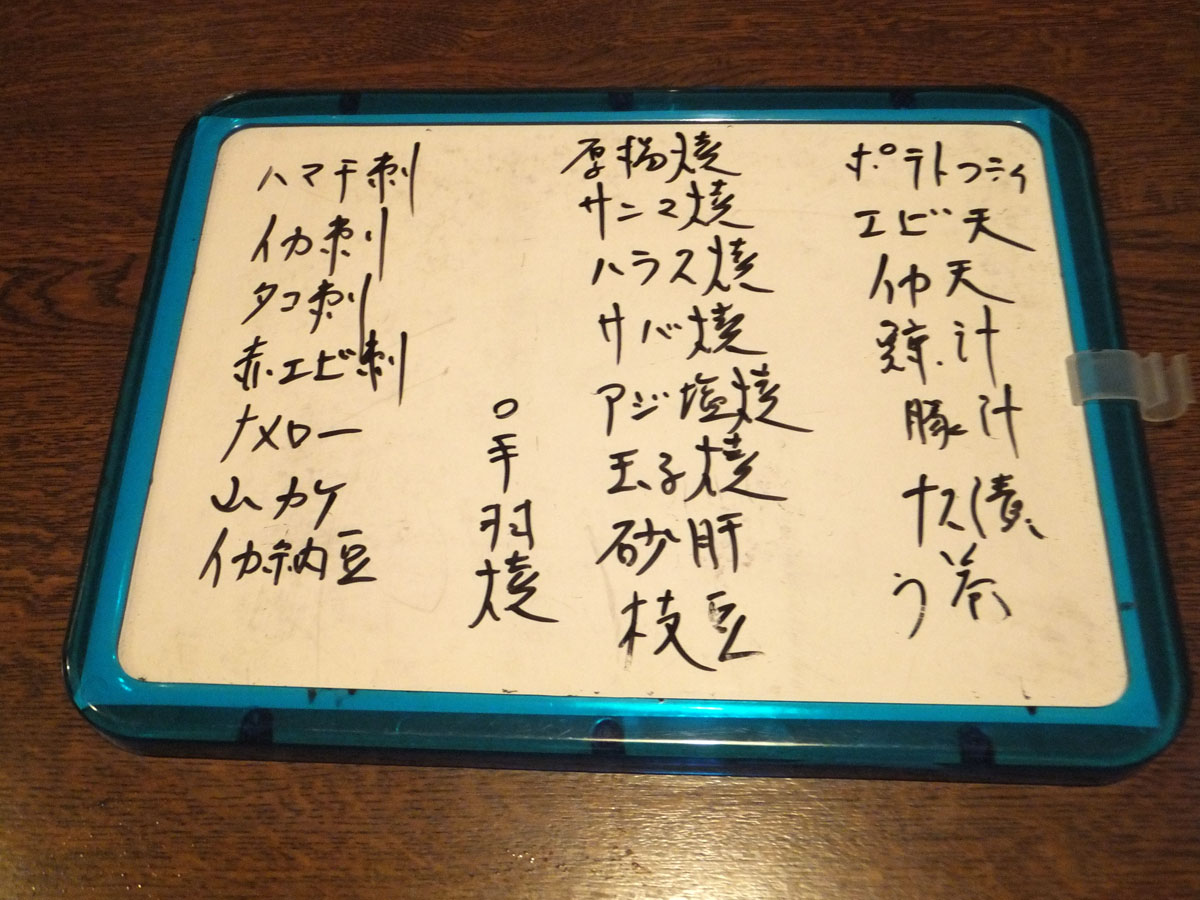 ハマチ刺
イカ刺
タコ刺
赤エビ刺
ナメロー
山カケ
イカ納豆
○手羽焼
厚揚焼
サンマ焼
ハラス焼
サバ焼
アジ塩焼
玉子焼
砂肝
枝豆
ポテトフライ
エビ天
イカ天
鯨汁
豚汁
ナス漬
う巻